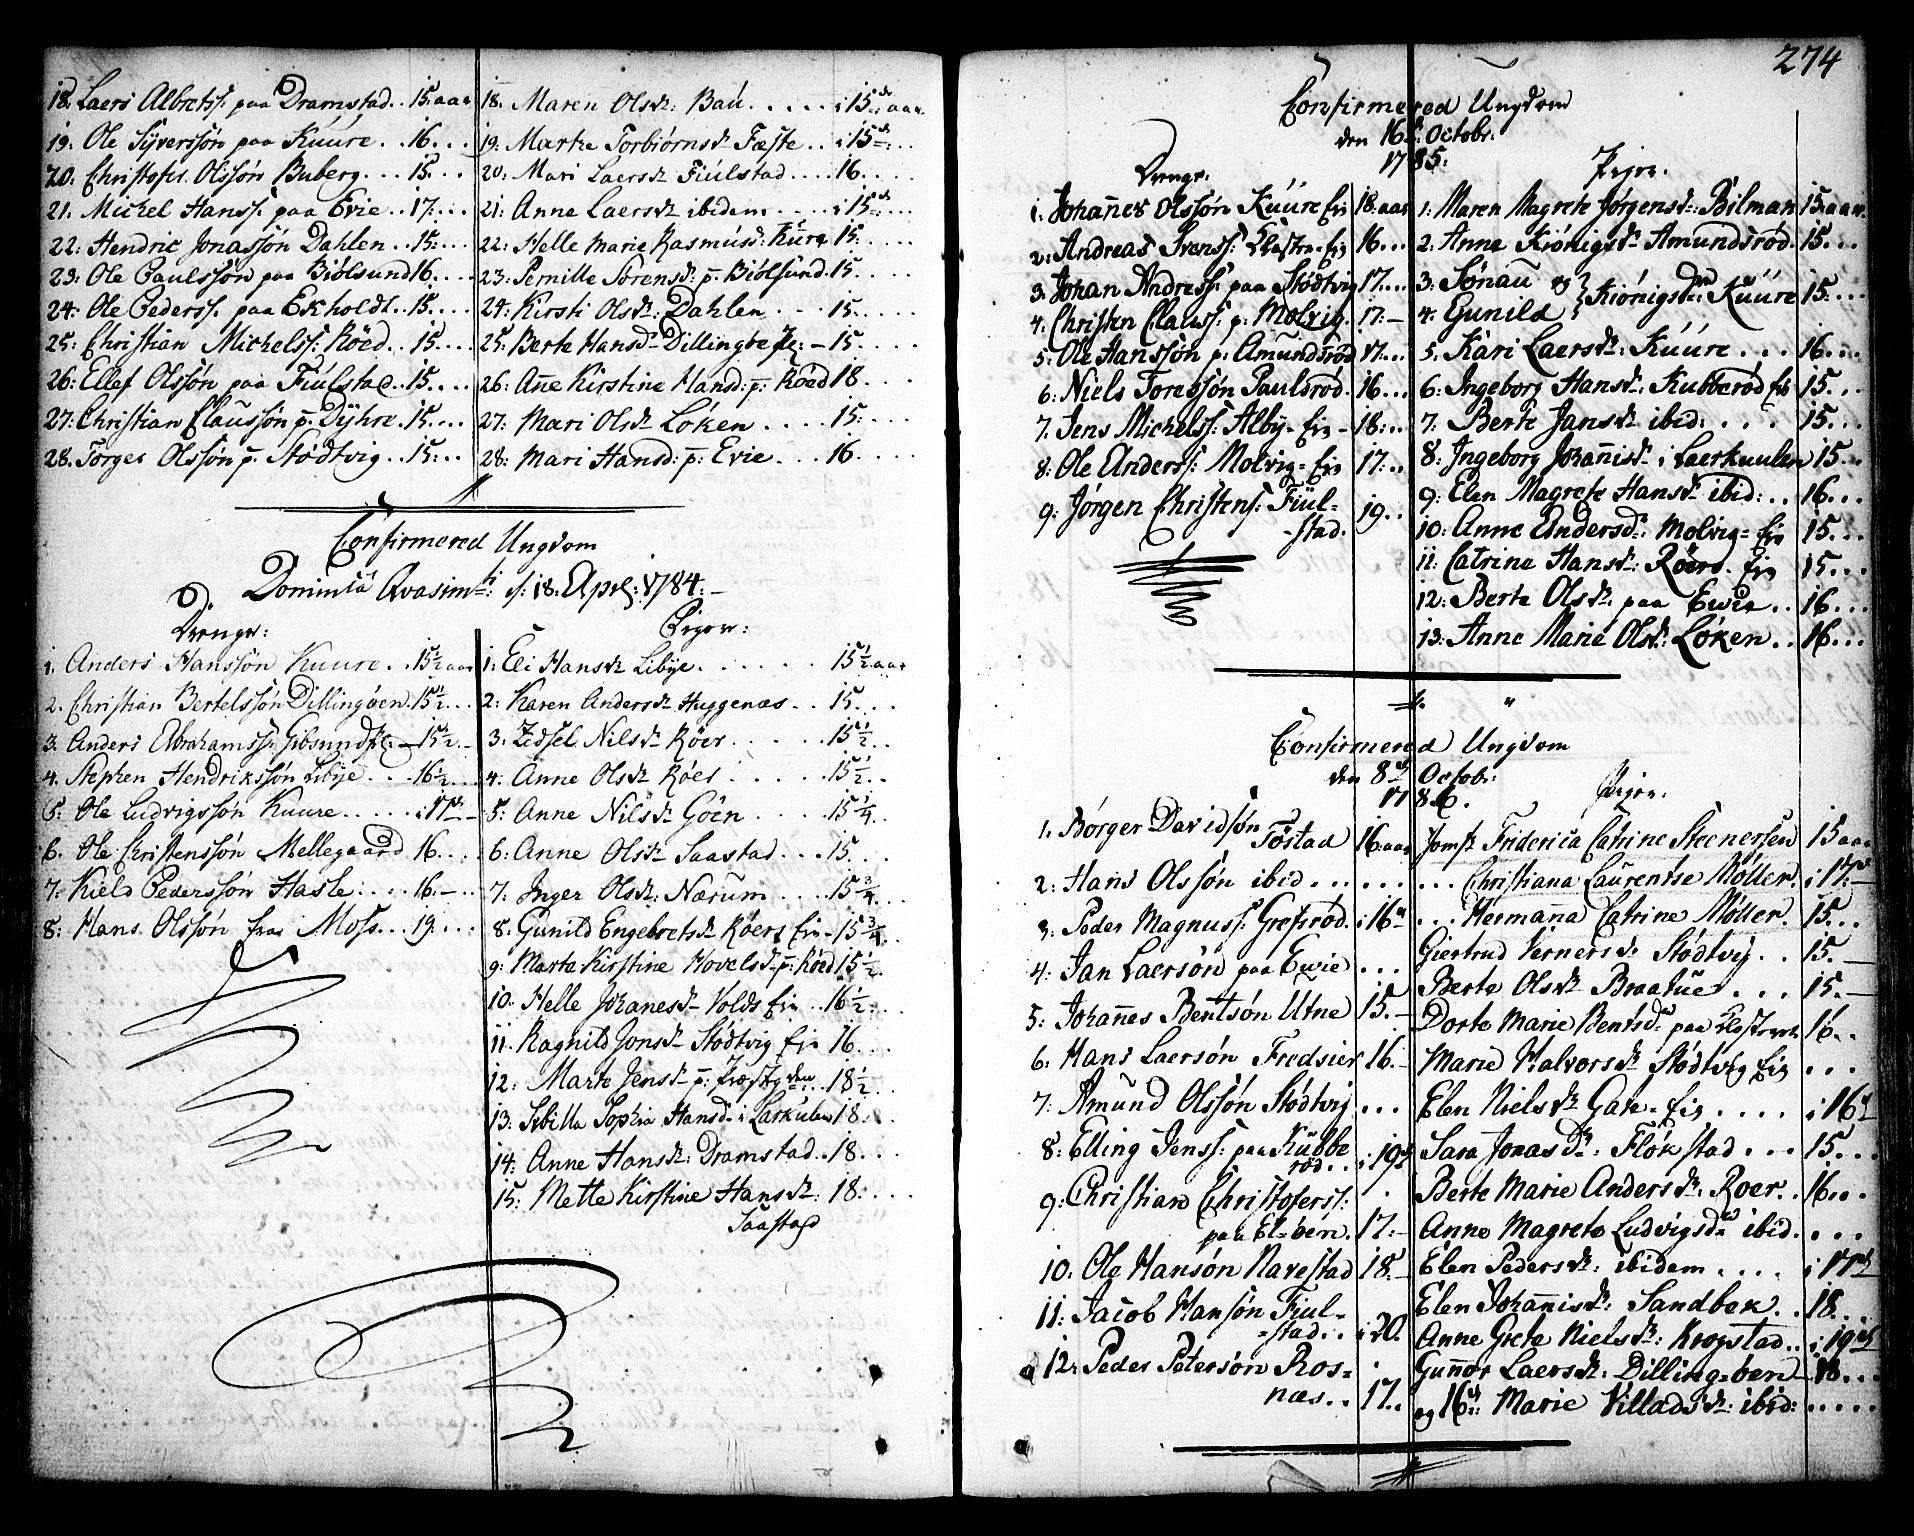 18. Laers Albretss: paa Dramstad . . 15. aar
19. Ole Syverssøn paa Kuure . . 16. . .
20. Christofer Olssøn Buberg . . . 15. . .
21. Michel Hanss: paa Evie . . 17. . .
22: Hendric Jonassøn Dahlen . . 15. . .
23: Ole Paulssøn paa Biølsund 16. . .
24: Ole Pederss. paa Ekholdt . 15. . .
25: Christian Michelss: Røed . . 15. . .
26: Ellef Olssøn paa Fiulstad . . 15. . .
27: Christian Claussøn p: Dyhre . 15. . .
28. Torger Olssøn p. Stødtvig . . 15. . .
18. Maren Olsdr: Bau . . . . i 15de aar
19. Marte Torbiørnsdr Fæste . . i 15de
20. Mari Laersdr Fiulstad . . . 16. . .
21: Anne Laersdr ibidem . . . i 15de
22: Helle Marie Rasmusd: Kure 15. . .
23. Pernille Sørensdr p. Biølsund . 15. . .
24: Kirsti Olsdr: Dahlen . . . 15. . .
25: Berte Hansdr Dillingbe - 15. . .
26: Añe Kirstine Hansd: p: Røed 18 . . .
27: Mari Olsdr Løken . . . . 15. . .
28: Mari Hansd: p: Evie . . . 16. . .
Confirmered Ungdom
Dominicâ Qvasim: d: 18. April: 1784. -
Drenge:
1. Anders Hanssøn Kuure . . 15½ aar
2. Christian Bertelssøn Dillingøen . 15½ . . .
3. Anders Abrahamss: Gibsund 15½ -
4. Stephen Hendrikssøn Libye . . . 16½ . . .
5: Ole Ludvigssøn Kuure . . . . i 17de
6. Ole Christenssøn Mellegaard 16. . .
7: Kield Pederssøn Hasle: . . . 16. - . .
8: Hans Olssøn fra Moss . . 19. . .
Piger:
1: Eli Hansdr Libye . . . . . . 15½ aar
2: Karen Andersdr Huggenæs . . 15. . .
3: Zidsel Nilsdr Røer . . . . . 15½ . .
4: Anne Olsdr Røer . . . . . 15½ . .
5: Anne Nilsdr Goen . . . . 15¼ . .
6: Anne Olsdr Saastad . . . 15. . .
7: Inger Olsdr: Nærum . . . 15¾ . .
8. Gunild Engebretsdr Røers Eie - 15¾ . .
9: Marte Kirstine Hovelsdr p: Røed 15½ . .
10. Helle Johanesdr Volds Eie . . 16½ . .
11. Ragnild Jonsdr Stødtvig Eie 16 . . .
12: Marte Jensdr p: Præstg: . . 18½ . .
13: Sibilla Sophia Hansd: i Larkulen 18. . .
14: Anne Hansdr: Dramstad . . 18. . .
15: Mette Kirstine Hansdr: 18: . . .
Saastad
274
Confirmered Ungdom
den 16de Octobr:
1785:
Drenge:
1. Johañes Olssøn Kuure Eie 18. aar
2: Andreas Ivenss: Eie 16. . .
3. Johan Andress: paa Stødtvig 17. . .
4. Christen Clauss: p: Molvig . 17. -
5: Ole Hanssøn p: Amundsrød 17. . .
6: Niels Torebssøn Paulsrød . 16. . .
7. Jens Michelss: Alby - Eie - 18. . .
8: Ole Anderss: Molvig = Eie 17. . .
9: Jørgen Christens: Fiul-
-stad. 19. .
Piger.
1. Maren Magrete Jørgensdr: Bilman 15. aar
2. Anne Kiønigsdr Amundsrød . 15. . .
3. Sønau og
4. Gunild } Kiønigsdr: Kuure 15: . . .
5. Kari Laersdr: Kuure . . . 16. . .
6: Ingeborg Hansdr: Kubberød Eie 15. . .
7: Berte Jansdr ibid: . . . . 15. . .
8: Ingeborg Johañisdr i Laerkuulen 15. . .
9: Elen Magrete Hansdr ibid: . . 16. . .
10: Anne Andersdr: Molvig = Eie 15. . .
11: Catrine Hansdr: Røers Eie 15. . .
12: Berte Olsdr. paa Ewie . . 16. . .
13: Anne Marie Olsdr: Løken . . 16. . .
Confirmered Ungdom
den 8de Octobr:
1786.
1. Børger Davidsøn
Tøstad 16. aar
2: Hans Olssøn ibid . . . . . .
3: Peder Magnuss: Grefsrød . i 16de
4: Jan Laersøn paa Ewie . . .
5: Johañes Bentsøn Utne 15. -
6: Hans Laersøn Fredsier 16. -
7: Amund Olssøn Stødtvig . . .
8: Elling Jenss: paa Kubbe
rød . . i 19de
9: Christian Christoferss:
paa El=øen . 17. -
10: Ole Hansøn Navestad 18. -
11: Jacob Hansøn Fiul=
=stad . . i 20.
og 12: Peder Petersøn Ros=
næs . . 17. .
Piger:
Jomfr Friderica Catrine Steenersen 15 aar
. . . Christiana Laurentse Møller . i 17de
. . . Hermaña Catrine Møller . 15. . .
Giertrud Vernersdr Stødtvig . . 15. -
Berte Olsdr Braatue . . . 15. -
Dorte Marie Bentsdr paa 16. .
Marie Halvorsdr Stødtvig Eie . . .
Elen Nielsdr Gate - Eie . . . . i 16de
Sara Jonasdr: Fløkstad . . . 15. . .
Berte Marie Andersdr. Roer . . 16. . .
Anne Magrete Ludvigsdr ibid . . . .
Elen Pedersdr: ibidem . . . . i 17de
Elen Johañisdr: Sandbek . . 18. . .
Anne Grete Nielsdr: Krogstad . . i 19de
Guñor Laersdr: Dilling=øen - 18. . .
og 16de: Marie Villadsdr: ibid: . . . . .